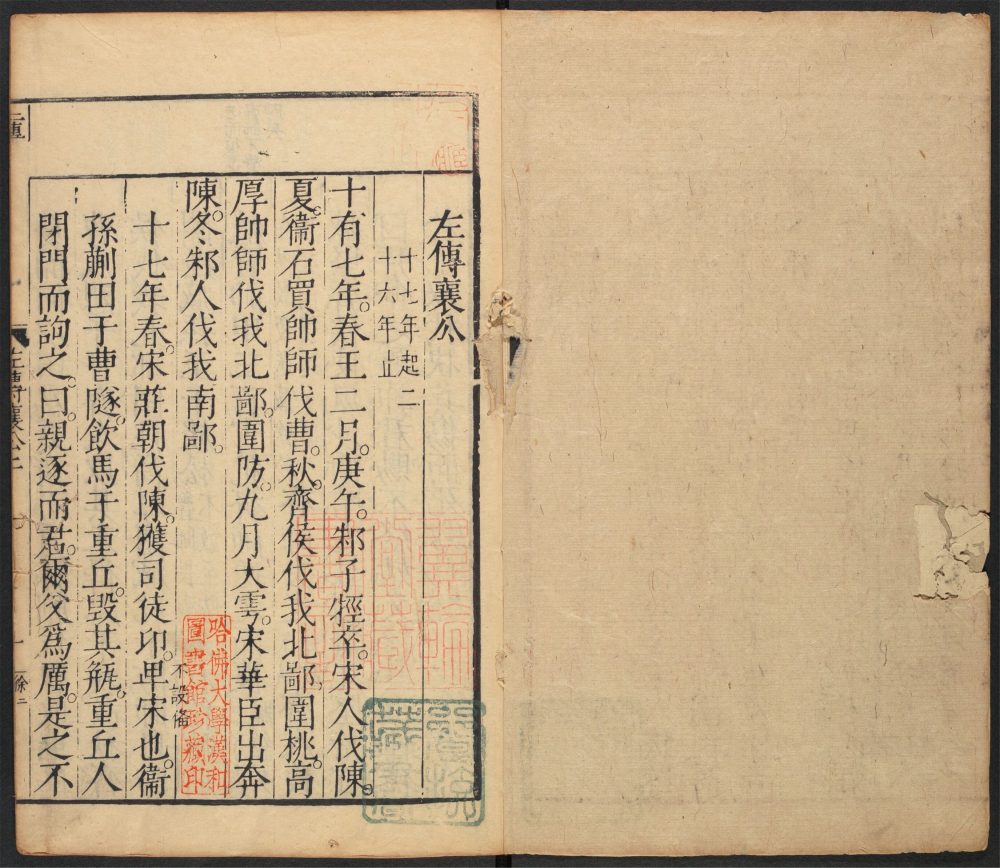 左傳襄公
十七年起二
十六年止
十有七年。春王二月。庚午。邾子牼卒。宋人伐陳。
夏。衞石買帥師伐曹。秋。齊侯伐我北鄙。圍桃。高
厚帥師伐我北鄙。圍防。九月大雩。宋華臣出奔
陳。冬。邾人伐我南鄙。
十七年春。宋莊朝伐陳。獲司徒卬。卑宋也。衞
不設備
孫蒯田于曹隧。飲馬于重丘。毀其甁。重丘人
閉門而訽之。曰。親逐而君。爾父爲厲。是之不
左傳襄公二
一
徐二
哈佛大學漢和
圖書館珍藏印